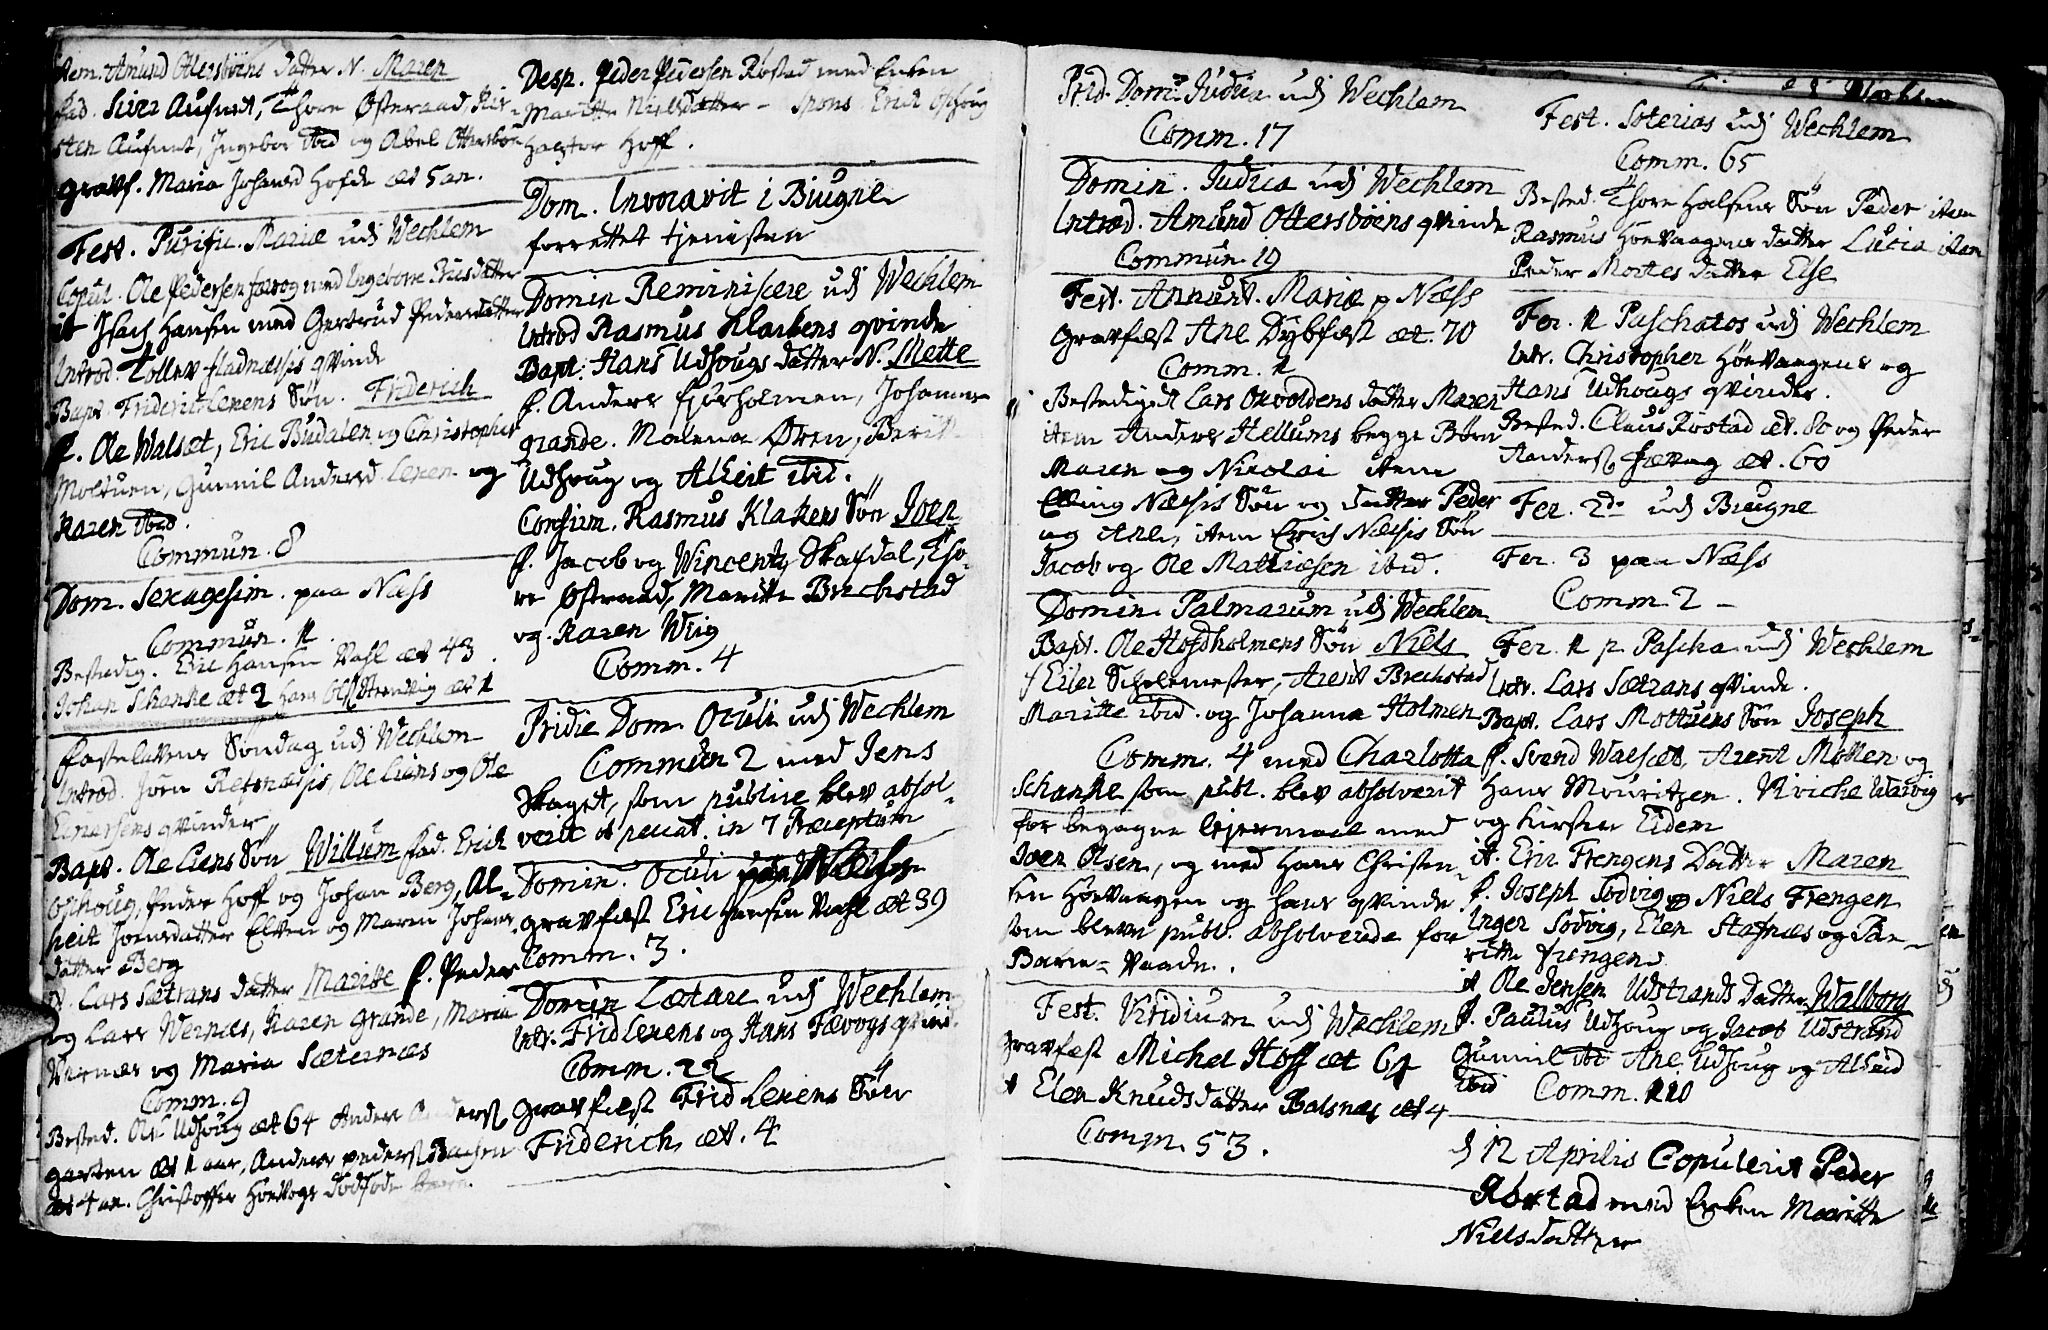 item. Amund Ottersböens datter N. Maren
fad. Siver Aufmet, Thore Østeraad, Kir-
sten Aufmet, Ingebor ibid og Abel Ottersböen
gravf. Maria Johansd Hofde æt 5 an.
Fest. Purific. Mariæ udj Wechlem
Copul. Ole Pedersen færog med Ingeborre Ericsdatter
it Isach Hansen med Gertrud Pedersdatter
Introd. Tollev fladnæssis qvinde
Bapt Friderich Lexens Sön. Friderich
f. Ole Walsæt, Eric Budalen og Christopher
Moltuen, Gunnil Andersd Lexen og
Karen ibid.
Commun. 8
Dom. Sexagesim. paa Næss
Commun. 1.
Bestedig. Eric Hansen Vahl æt 43
Johan Schanke æt 2 hans
Fastelavens Söndag udj Wechlem
Introd. Joen Refsnæsis, Ole Liens og Ole
Einersens qvinder
Bapt. Ole Liens Sön Willum fad. Erich
Ophoug, Peder Hoff og Johan Berg, Al-
heit Joensdatter Elven og Maren Johans
datter Berg
it. Lars Sætrans datter Maritte f. Peder
og Lars Wernæs, Karen grande, Maria
Wernæs og Maria Sæternæs
Comm. 9
Bested. Ole Udhoug æt 64 Anders Anders
garten æt 1 aar, Anders peders Bachen
æt 4 an. Christoffer Hövogs dödföde barn.
Desp. Peder Pedersen Röstad med Enken
Maritte Nielsdatter - Spons Erich Ophoug
Hagtor Hoff.
Dom. Invocavit i Biugne
forrettet tjenisten
Domin Reminiscere udj Wechlem
Introd Rasmus Klakens qvinde
Bapt: Hans Udhougs datter N. Mette
f. Anders fjurholmen, Johannes
grande. Malena Ören, Berit
Udhoug og Alheit ibid.
Confirm. Rasmus Klakens Sön Joen
f. Jacob og Wincentz Skavdal, Tho-
re Östraad, Maritte Brechstad
og Karen Wiig
Comm. 4
Pridie Dom. Oculi udj Wechlem
Commun 2 med Jens
Skaget, som publice blev absol-
verit ob peccat. in 7 Præceptum
Domin. Oculi
gravfæst Eric Hansen Vahl æt 39
Comm. 3.
Domin Lætare udj Wechlem
Intr. Frid Lexens og Hans Fævogs qvind.
Comm. 22
Gravfæst Frid Lexens Sön
Friderich æt. 4
Prid. Dom. Judica udj Wechlem
Comm. 17
Domin. Judica udj Wechlem
Introd. Amund Ottersböens qvinde
Commun. 19
Fest. Annunt. Mariæ p Næss
gravfæst Ane Dybfest æt. 70
Comm. 1
Bestediget Lars Oxvoldens datter Maren
item Anders Hellums begge Börn
Maren og Nicolai item
Elling Næssis Sön og datter Peder
og Ane, item Erich Næssis Sön
Jacob og Ole Mathiesen ibid.
Domin. Palmarum udj Wechlem
Bapt. Ole Hofdholmens Sön Niels
f Eiler Scholemester, Arent Brechstad
Maritte ibid. og Johanna Holmen
Comm. 4 med Charlotta
Schanke som publ. blev absolverit
for begagne lejermaal med
Joen Olsen, og med Hans Christen-
sen Hövaagen og hans qvinde
som bleve publ. absolverede for
Barne-Vaade.
Fest. Viridium udj Wechlem
gravfest Michel Hoff æt 64
it Elen Knudsdatter Balsnæs æt 4
Comm. 53.
Fest. Soterias udj Wechlem
Comm. 65
Bested. Thore Holsens Sön Peder item
Rasmus Hövaagens datter Lucia item
Peder Mortes datter Else
Fer. 1 Paschatos udj Wechlem
Intr. Christopher Hövaagens og
Hans Udhougs qvinder.
Bested. Claus Röstad æt. 80 og Peder
Anders Fættag æt. 60
Fer. 2da udj Biugne
Fer. 3 paa Næss
Comm 2 -
Fer. 1 p Pascha udj Wechlem
Intr. Lars Sætrans qvinde.
Bapt. Lars Mottuens Sön Joseph
f. Svend Walsæt, Arent Möllen og
Hans Mouritzen. Viviche Warvig
og Kirsten Eidem
it. Eric Frengens Datter Maren
f. Joseph Sodvig og Niels Frengen
Inger Sodvig, Elen Stafnæs og Ma-
ritte Frengen
it Ole Jensen Udstrands datter Walborg
f. Paulus Udhoug og Jacob Udstrand
Gunnil ibi Ane Udhoug og Alheid
ibid Comm. 110
d 12 Aprilis Copulerit Peder
Röstad med Enken Maritte
Nielsdatter